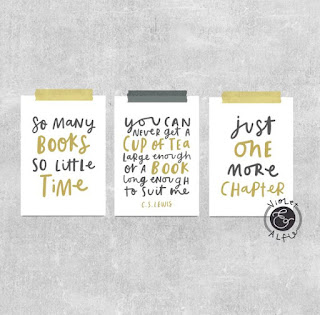 so many
BOOKS
so little
TIME
you can
never get a
CUP OF TEA
large enough
or a BOOK
long enough
to suit me
C.S. LEWIS
just
ONE
more
CHAPTER
Violet
&
Alfie